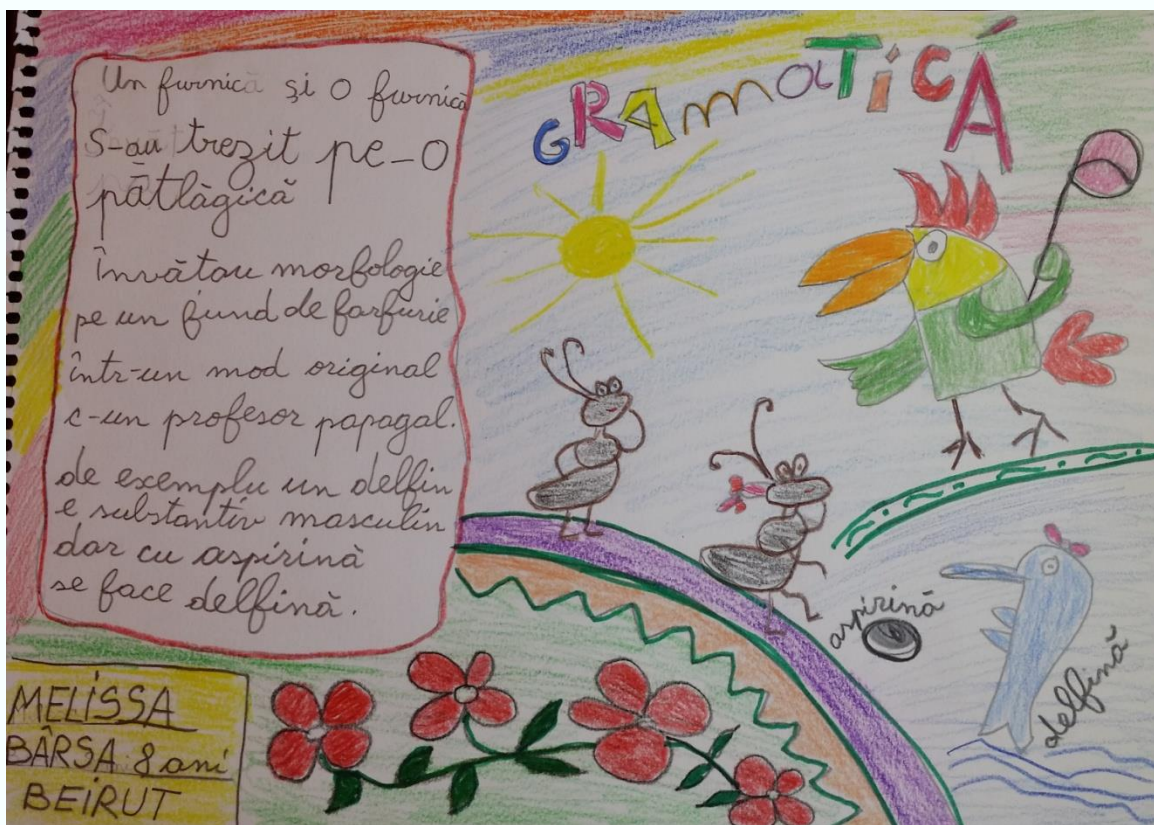 GRAMATICĂ
Un furnică și o furnică
S-au trezit pe-o
pătlăgică
învătau morfologie
pe un fund de farfurie
într-un mod original
c-un profesor papagal.
de exemplu un delfin
e substantiv masculin
dar cu aspirină
se face delfină.
aspirină
delfină
MELISSA
BÂRSA 8 ani
BEIRUT